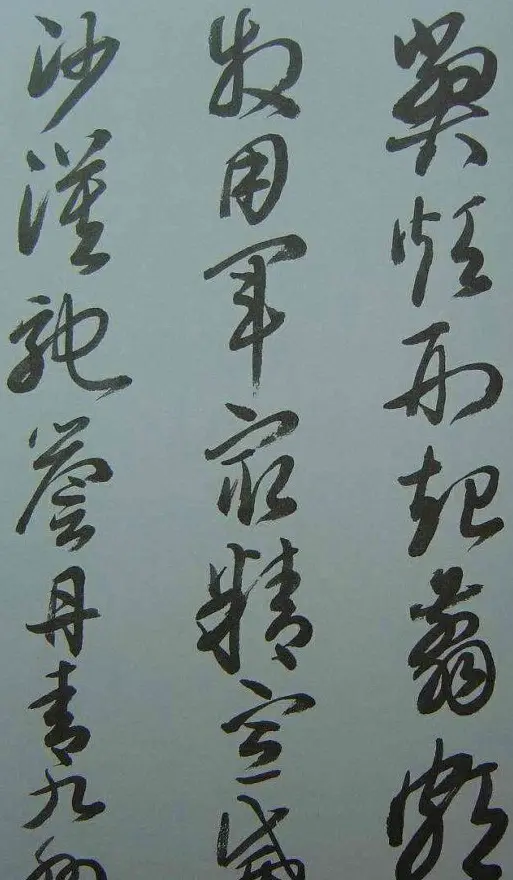 弊烦刑起翦颇
牧用军最精宣威
沙漠驰誉丹青九州